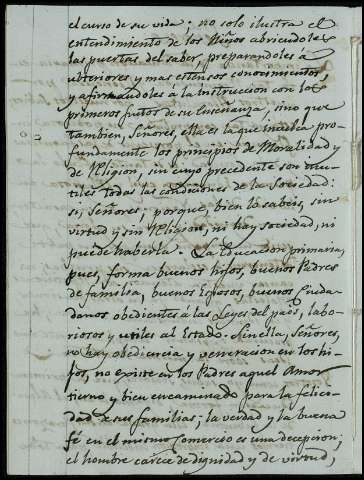 el curso de su vida: no solo ilustra el
entendimiento de los Niños abriendoles
las puertas del saber, preparandoles á
ulteriores y mas estensos conocimientos,
y afirmandoles á la instruccion con los
primeros frutos de su Enseñanza, sino que
tambien, Señores, ella es la que inculca pro-
fundamente los principios de Moralidad y
de Religion, sin cuyo precedente son inu-
tiles todas las condiciones de la Sociedad:
si, Señores, porque, bien lo sabeis, sin
virtud y sin Religion, ni hay sociedad, ni
puede haberla. La Educacion primaria,
pues, forma buenos hijos, buenos Padres
de familia, buenos Esposos, buenos Ciuda-
danos obedientes á las Leyes del pais, labo-
riosos y utiles al Estado. Sin ella, Señores,
no hay obediencia y veneracion en los hi-
jos, no existe en los Padres aquel Amor
tierno y bien encaminado para la felici-
dad de sus familias; la verdad y la buena
fé en el mismo Comercio es una decepcion;
el hombre carece de dignidad y de virtud,